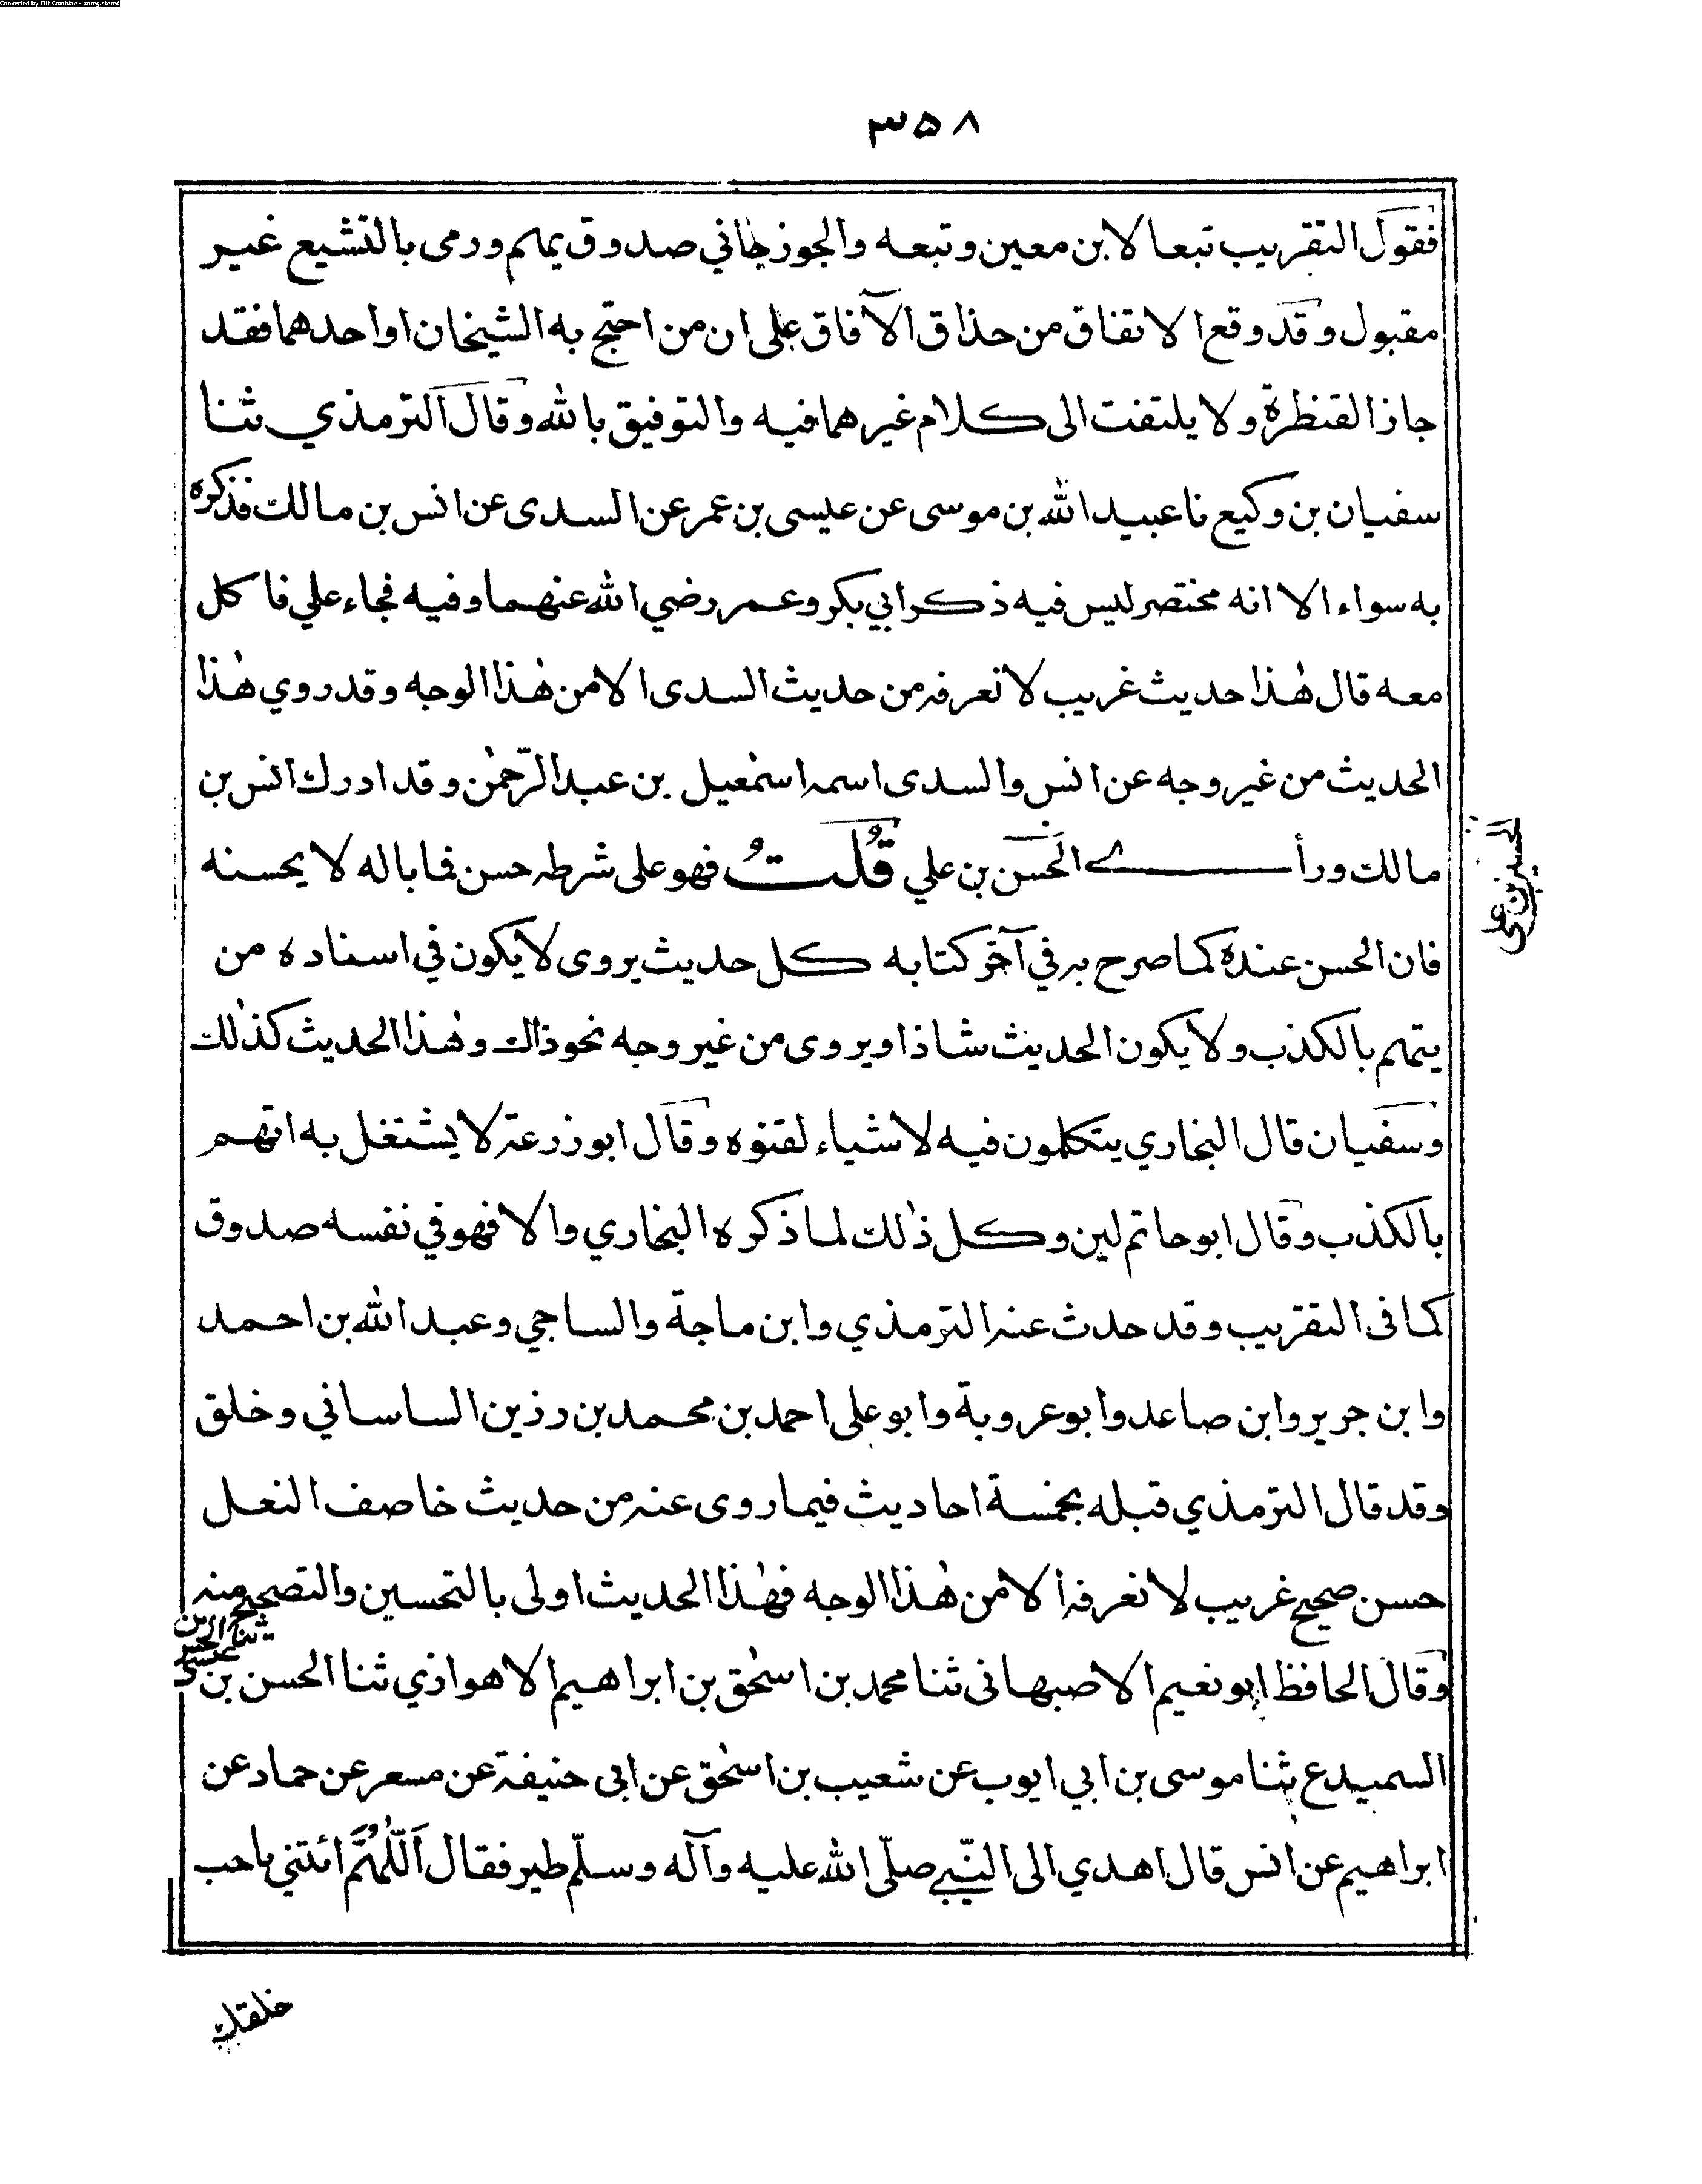 Converted by Tiff Combine - unregistered
۳۵۸
فقول التقريب تبعا لابن معين وتبعه والجوزجاني صدوق يهم ورمى بالتشيع غير
مقبول وقد وقع الاتفاق من حذاق الآفاق على ان من احتج به الشيخان او احدهما فقد
جاز القنظرة ولا يلتفت الى كلام غيرهما فيه والتوفيق بالله وقال الترمذي ثنا
سفيان بن وكيع نا عبيد الله بن موسى عن عيسى بن عمر عن السدى عن انس بن مالك فذكره
به سواء الا انه مختصر ليس فيه ذكر ابي بكر وعمر رضي الله عنهما وفيه فجاء علي فاكل
معه قال هٰذا حديث غريب لا نعرفه من حديث السدى الا من هٰذا الوجه وقد روي هٰذا
الحديث من غير وجه عن انس والسدى اسمه اسمٰعيل بن عبد الرّحمٰن وقد ادرك انس بن
مالك ورأى الحسن بن علي قُلتُ فهو على شرطه حسن فما باله لا يحسنه
الحسين بن على
فان الحسن عنده كما صرح به في آخر كتابه كل حديث يروى لا يكون في اسناده من
يتهم بالكذب ولا يكون الحديث شاذا ويروى من غير وجه نحو ذاك وهٰذا الحديث كذلك
وسفيان قال البخاري يتكلمون فيه لاشياء لقنوه وقال ابو زرعة لا يشتغل به اتهم
بالكذب وقال ابو حاتم لين وكل ذٰلك لما ذكره البخاري والا فهو في نفسه صدوق
كما فى التقريب وقد حدث عنه الترمذي وابن ماجة والساجي وعبد الله بن احمد
وابن جرير وابن صاعد وابو عروبة وابو على احمد بن محمد بن رزين الساساني وخلق
وقد قال الترمذي قبله بخمسة احاديث فيما روى عنه من حديث خاصف النعل
حسن صحيح غريب لا نعرفه الا من هٰذا الوجه فهٰذا الحديث اولى بالتحسين والتصحيح منه
وقال الحافظ ابو نعيم الاصبهانى ثنا محمد بن اسحٰق بن ابراهيم الاهوازي ثنا الحسن بن
السميدع ثنا موسى بن ابي ايوب عن شعيب بن اسحٰق عن ابى حنيفة عن مسعر عن حماد عن
ابراهيم عن انس قال اهدي الى النّبي صلّى الله عليه وآله وسلّم طير فقال اَللّٰهُمَّ ائتني باحب
خلقك